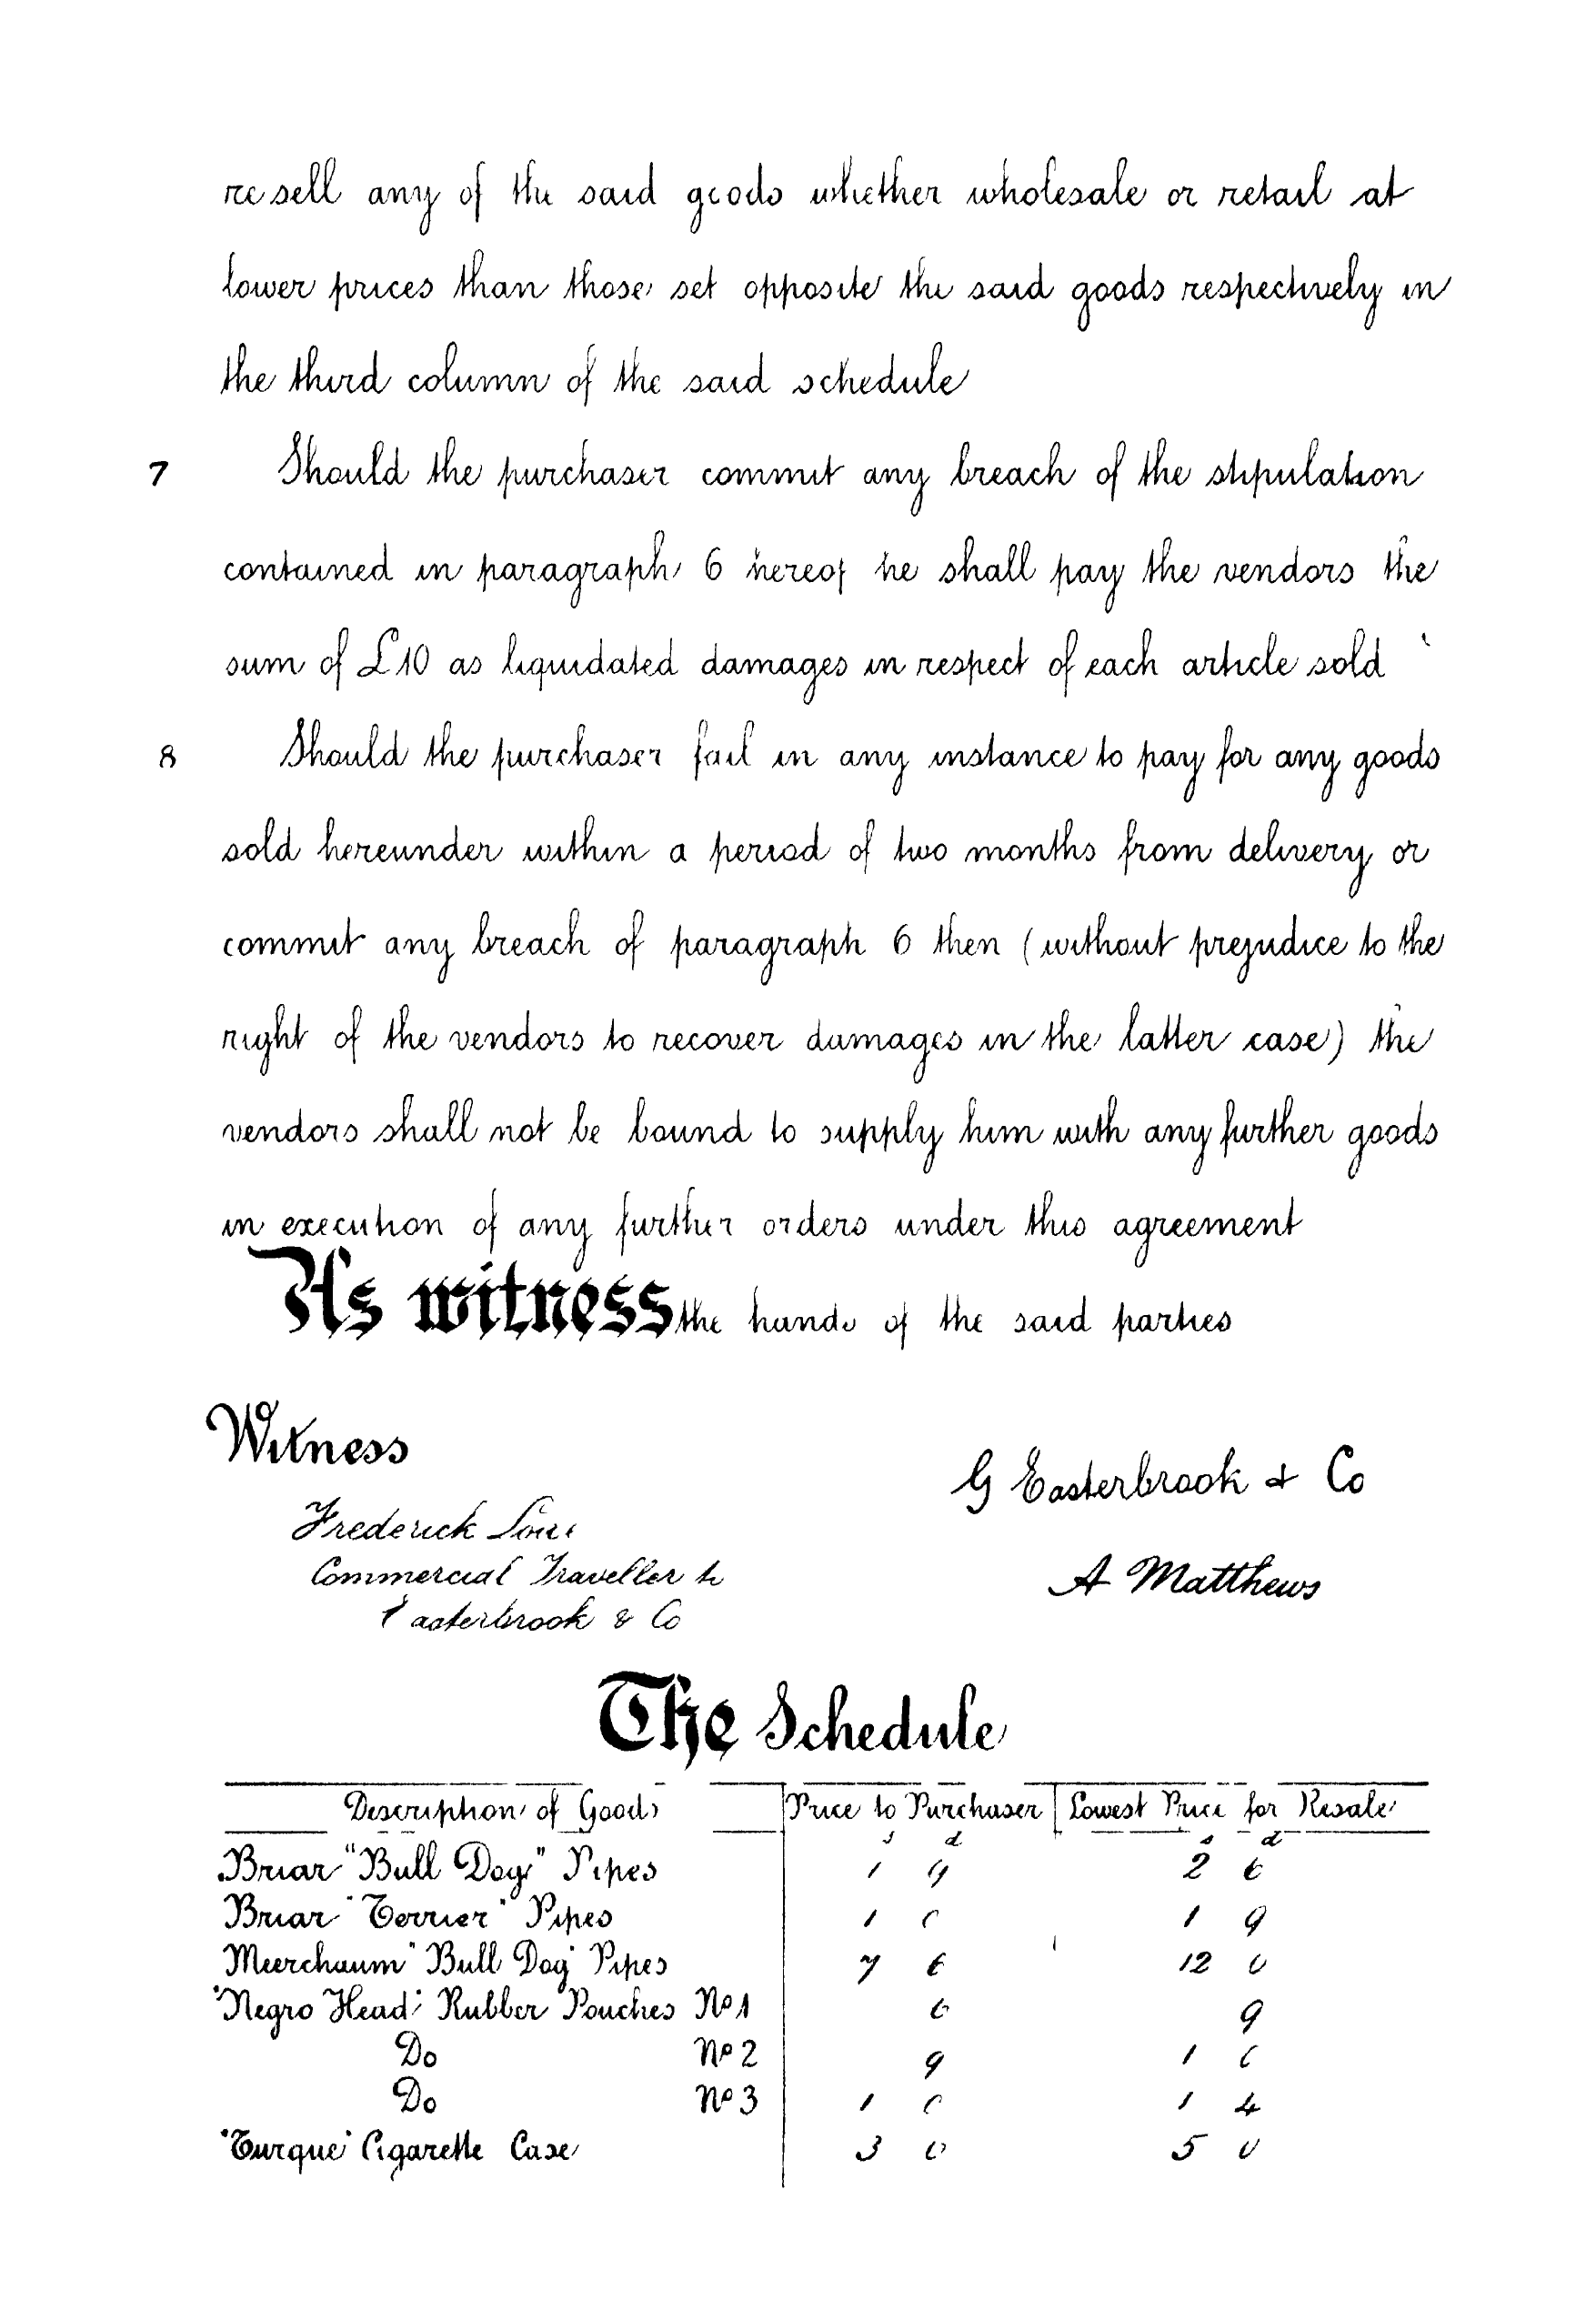 resell any of the said goods whether wholesale or retail at
lower prices than those set opposite the said goods respectively in
the third column of the said schedule
7 Should the purchaser commit any breach of the stipulation
contained in paragraph 6 hereof he shall pay the vendors the
sum of £10 as liquidated damages in respect of each article sold
8 Should the purchaser fail in any instance to pay for any goods
sold hereunder within a period of two months from delivery or
commit any breach of paragraph 6 then (without prejudice to the
right of the vendors to recover damages in the latter case) the
vendors shall not be bound to supply him with any further goods
in execution of any further orders under this agreement
As witness the hands of the said parties
Witness
G Easterbrook & Co
Frederick
Commercial Traveller to
A Matthews
Easterbrook & Co
The Schedule
Description of Goods Price to Purchaser Lowest Price for Resale
s d s d
Briar "Bull Dog" Pipes 1 9 2 6
Briar "Terrier" Pipes 1 0 1 9
Meerchaum "Bull Dog" Pipes 7 6 12 0
"Negro Head" Rubber Pouches No 1 6 9
Do No 2 9 1
Do No 3 1 0 1 4
"Turque" Cigarette Case 3 0 5 0